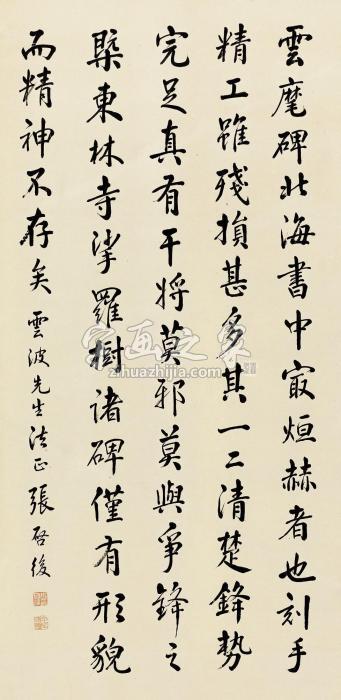 雲麾碑北海書中冣烜赫者也刻手
精工雖殘損甚多其一二清楚鋒勢
完足真有干將莫邪莫與爭鋒之
槩東林寺娑羅樹諸碑僅有形貌
而精神不存矣 雲波先生法正 張啓後
字画之家
z.huazhijia.com